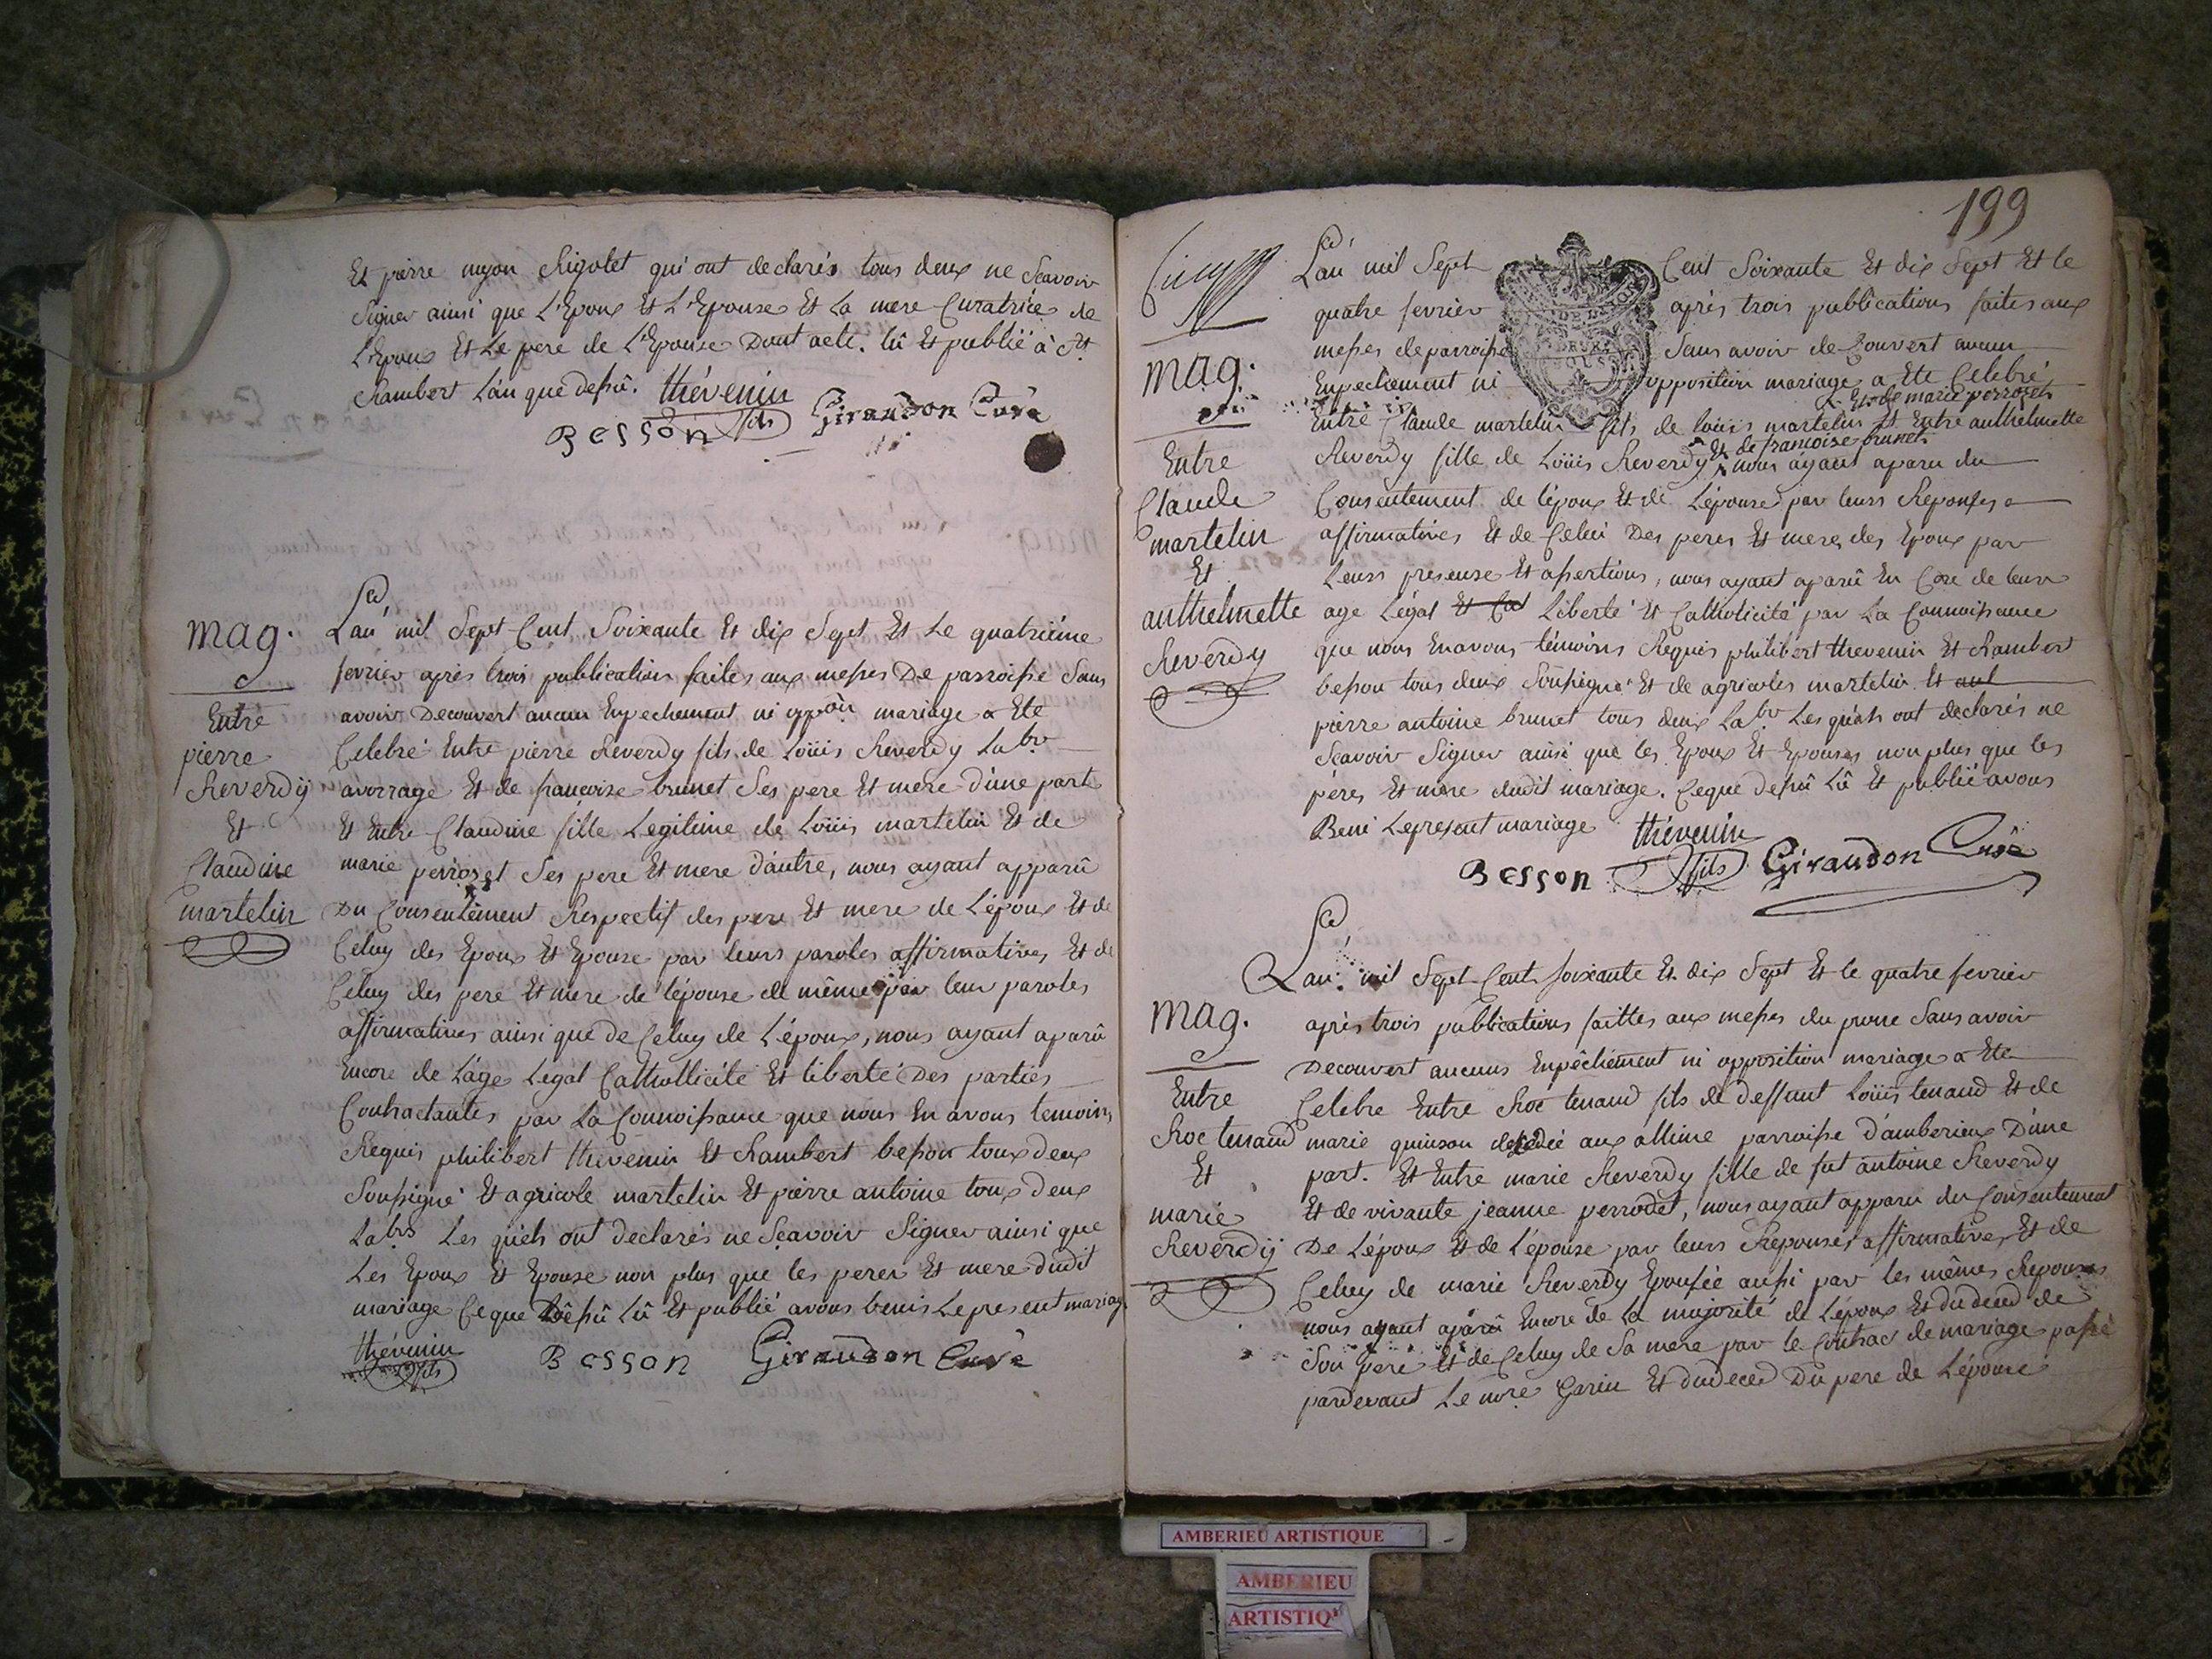 Et pierre moyon Rigolet qui ont declarés tous deux ne Scavoir
Signer ainsi que L'Epoux Et L'Epouse Et La mere Curatrice de
L'Epoux Et Le pere de L'Epouse Dont acte. lû Et publié à St
Rambert L'an que dessû. thévenin
Besson fils Giraudon Curé
mag.
Entre
pierre
Reverdy
Et
Claudine
martelin
L'an mil Sept Cent Soixante Et dix Sept Et Le quatriéme
fevrier après trois publication faites aux messes De parroisse Sans
avoir Decouvert aucun Enpechement ni oppon mariage a Ete
Celebré Entre pierre Reverdy fils de Loüis Reverdy Labr
Et de françoise brunet Ses pere Et mere d'une part
Et Entre Claudine fille Legitime de Loüis martelin Et de
marie perrozet Ses pere Et mere d'autre, nous ayant apparû
Du Consentement Respectif des pere Et mere de L'époux Et de
Celuy des Epoux Et Epouse par leurs paroles affirmatives Et de
Celuy des pere Et mere de l'épouse de même par leur paroles
affirmatives ainsi que de Celuy de L'époux, nous ayant aparû
Encore de L'âge Legal Catholicité Et liberté Des parties
Contractantes par La Connoissance que nous En avons temoins
Requis philibert thevenin Et Rambert besson tous deux
Soussigné Et agricole martelin Et pierre antoine tous deux
Labrs Les quels ont declarés ne Sçavoir Signer ainsi que
Les Epoux Et Epouse non plus que les peres Et mere dudit
mariage Ce que Dessû Lû Et publié avons benis Le present mariage
thévenin
fils Besson Giraudon Curé
199
mag.
Entre
Claude
martelin
Et
anthelmette
Reverdy
L'an mil Sept Cent Soixante Et dix Sept Et le
quatre fevrier après trois publications faites aux
messes de parroisse Sans avoir de Couvert aucun
Enpechement ni opposition mariage a Ete Celebré
Et de marie perrozet
Entre Claude martelin fils de loüis martelin Et Entre anthelmette
Et de françoise brunet
Reverdy fille de Loüis Reverdy nous ayant aparu du
Consentement de l'époux Et de L'épouse par leurs Reponses
affirmatives Et de Celui Des peres Et meres des Epoux par
Leurs presense Et assertions, nous ayant aparû En Core de leur
age Légal Liberté Et Catholicité par La Connoissance
que nous En avons témoins Requis philibert thevenin Et Rambert
besson tous deux Soussigné Et de agricoles martelin Et
pierre antoine brunet tous deux Labr Les quels ont declarés ne
Scavoir Signer ainsi que les Epoux Et Epouses non plus que les
péres Et mere dudit mariage. Ce que dessû Lû Et publié avons
Beni Le present mariage thévenin
Besson fils Giraudon Curé
mag.
Entre
Roc tenand
Et
marie
Reverdy
L'an mil Sept Cent soixante Et dix Sept Et le quatre fevrier
après trois publications faittes aux messes du prone Sans avoir
Decouvert aucuns Enpêchement ni opposition mariage a Ete
Celebre Entre Roc tenand fils de deffunt Loüis tenand Et de
marie quinson aux allime parroisse d'amberieux D'une
part. Et Entre marie Reverdy fille de fut antoine Reverdy
Et de vivante jeanne perrodet, nous ayant apparu du Consentement
De L'époux Et de L'épouse par leurs Reponses affirmatives Et de
Celuy de marie Reverdy Epousée aussi par les mêmes Reponses
nous ayant aparû Encore de La majorité de L'époux Et du deced de
Son pere Et de Celuy de Sa mere par le Contrac de mariage passé
pardevant Le nore Garin Et du deced Du pere de L'épouse
AMBERIEU ARTISTIQUE
AMBERIEU
ARTISTIQ